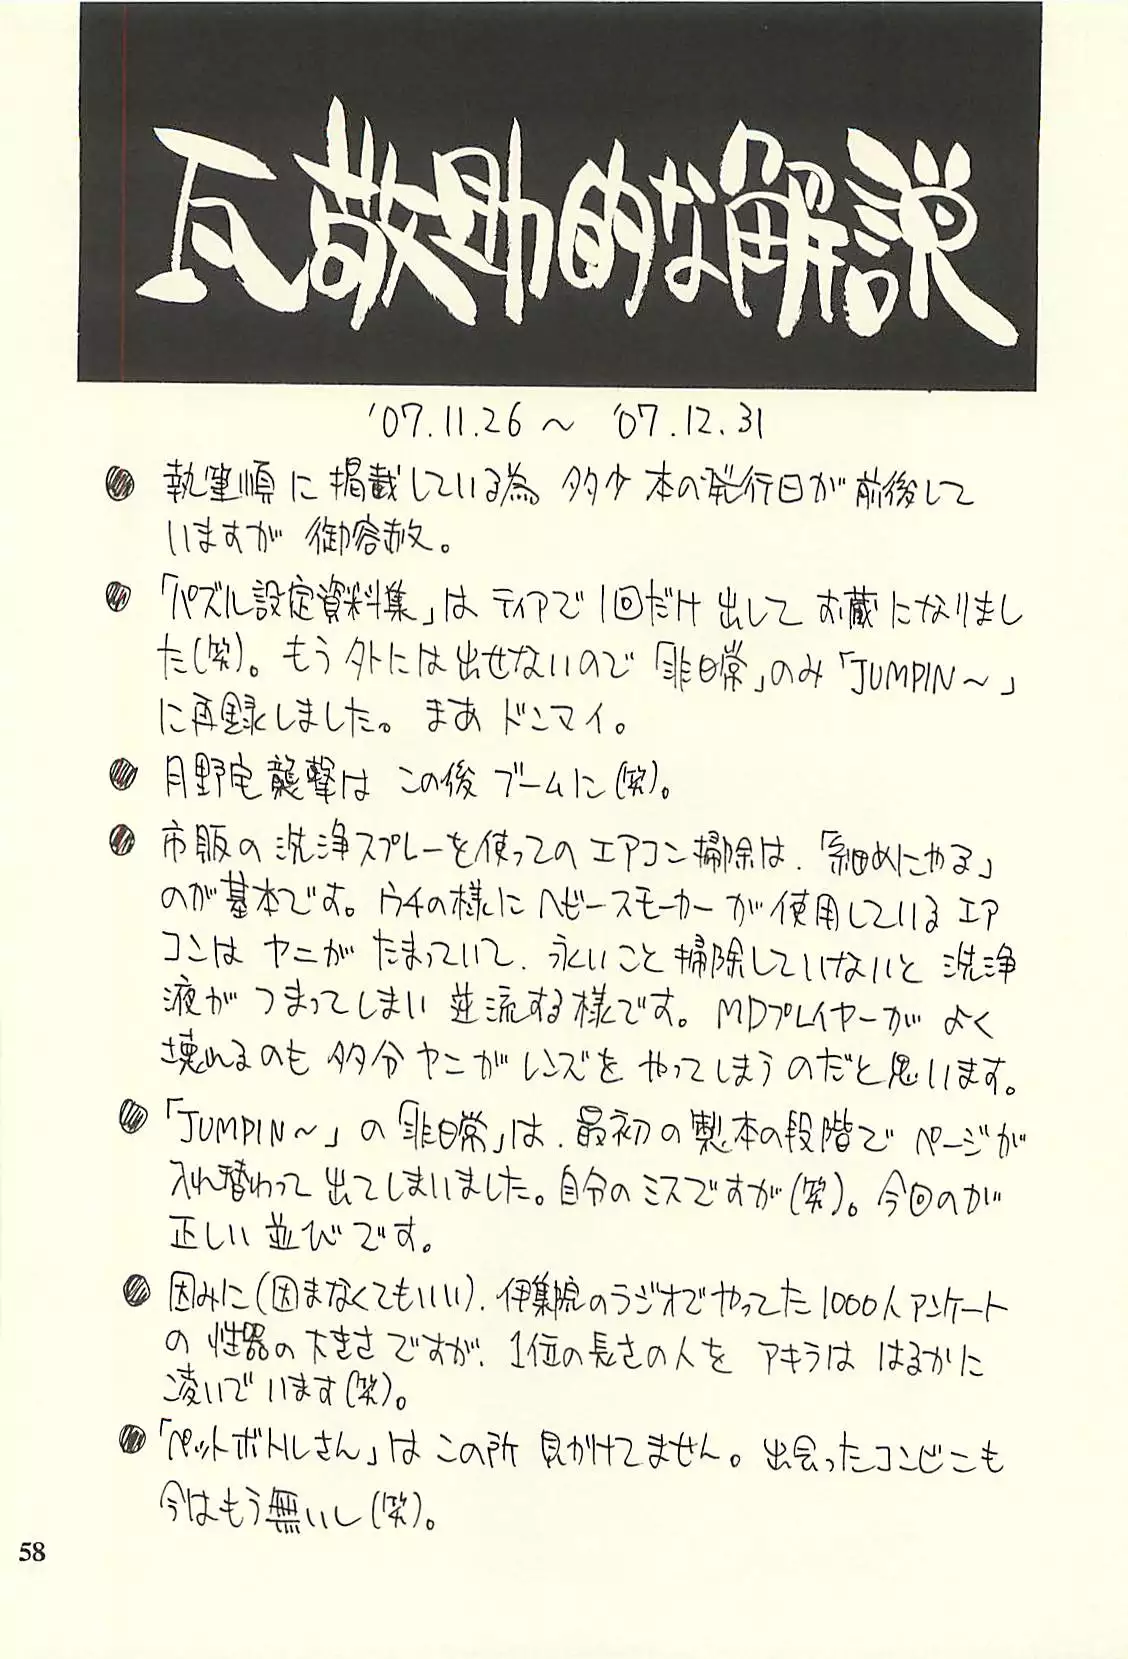 瓦敬助的な解説
'07.11.26～ '07.12.31
執筆順に掲載している為 多少本の発行日が前後して
いますが 御容赦。
「パズル設定資料集」は ティアで1回だけ出して お蔵になりまし
た(笑)。もう外には出せないので「非日常」のみ「JUMPIN～」
に再録しました。まあ ドンマイ。
月野宅襲撃は この後 ブームに(笑)。
市販の洗浄スプレーを使ってのエアコン掃除は、「細めにやる」
のが基本です。ウチの様にヘビースモーカーが使用しているエア
コンは ヤニが たまっていて、永いこと掃除していけないと 洗浄
液が つまってしまい 逆流する様です。MDプレイヤーが よく
壊れるのも 多分ヤニがレンズを やってしまうのだと思います。
「JUMPIN～」の「非日常」は、最初の製本の段階で ページが
入れ替わって 出てしまいました。自分のミスですが(笑)。今回のが
正しい並びです。
因みに(因まなくてもいい)、伊集院のラジオでやってた1000人アンケート
の 性器の大きさですが、1位の長さの人を アキラは はるかに
凌いでいます(笑)。
「ペットボトルさん」は この所 見かけてません。出会ったコンビニも
今はもう無いし(笑)。
58